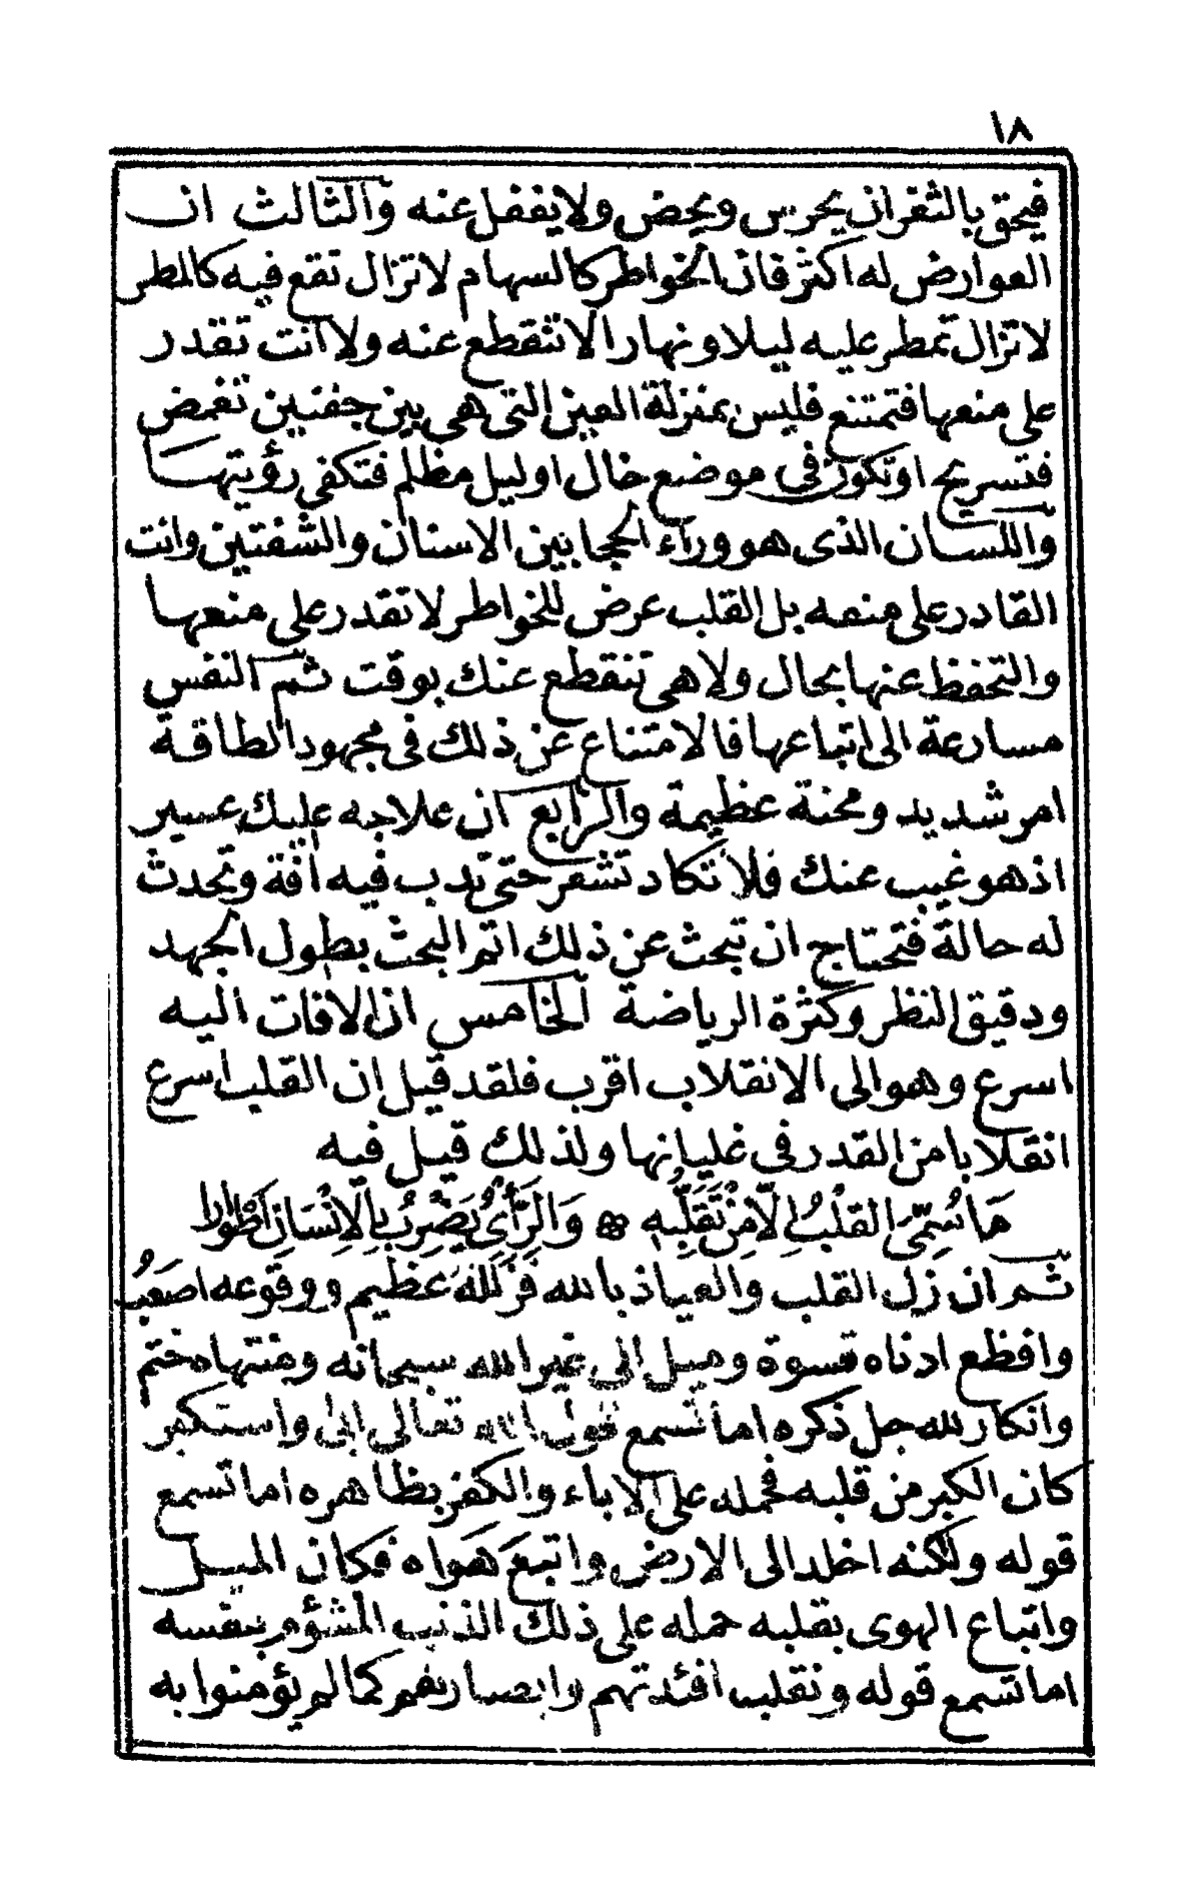 ١٨
فيحق بالثغر ان يحرس ويحض ولا يغفل عنه والثالث ان
العوارض له اكثر فان الخواطر كالسهام لا تزال تقع فيه كالمطر
لا تزال تمطر عليه ليلا ونهارا لا تنقطع عنه ولا انت تقدر
على منعها فتمتنع فليس بمنزلة العين التى هى بين جفنين تغمض
فتسريح او تكون فى موضع خال او ليل مظلم فتكفى رؤيتها
واللسان الذى هو وراء الحجابين الاسنان والشفتين وانت
القادر على منعه بل القلب عرض للخواطر لا تقدر على منعها
والتحفظ عنها بحال ولا هى تنقطع عنك بوقت ثم النفس
مسارعة الى اتباعها فالامتناع عن ذلك فى مجهود الطاقة
امر شديد ومحنة عظيمة والرابع ان علاجه عليك عسير
اذ هو غيب عنك فلا تكاد تشعر حتى تدب فيه افة وتحدث
له حالة فتحتاج ان تبحث عن ذلك اتم البحث بطول الجهد
ودقيق النظر وكثرة الرياضة الخامس ان الافات اليه
اسرع وهو الى الانقلاب اقرب فلقد قيل ان القلب اسرع
انقلابا من القدر فى غليانها ولذلك قيل فيه
مَا سُمِّىَ القَلْبُ اِلَّا مِنْ تَقَلُّبِهِ ۞ وَالرَّأْىُ يَضْرِبُ بِالْاِنْسَانِ اَطْوَارا
ثم ان زل القلب والعياذ بالله فزلته عظيم ووقوعه اصعبُ
وافظع ادناه قسوة وميل الى غير الله سبحانه ومنتهاه ختم
وانكار لله جل ذكره اما تسمع قول الله تعالى ابى واستكبر
كان الكبر من قلبه فحمله على الاباء والكفر بظاهره اما تسمع
قوله ولكنه اخلد الى الارض واتبع هواه فكان الميل
واتباع الهوى بقلبه حمله على ذلك الذنب المشؤم بنفسه
اما تسمع قوله ونقلب افئدتهم وابصارهم كما لم يؤمنوا به